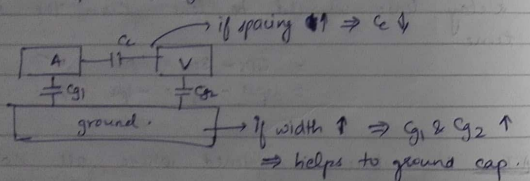 if spacing ↑ ⇒ Cc ↓
A Cc V
Cg1 Cg2
ground.
If width ↑ ⇒ Cg1 & Cg2 ↑
⇒ helps to ground cap.